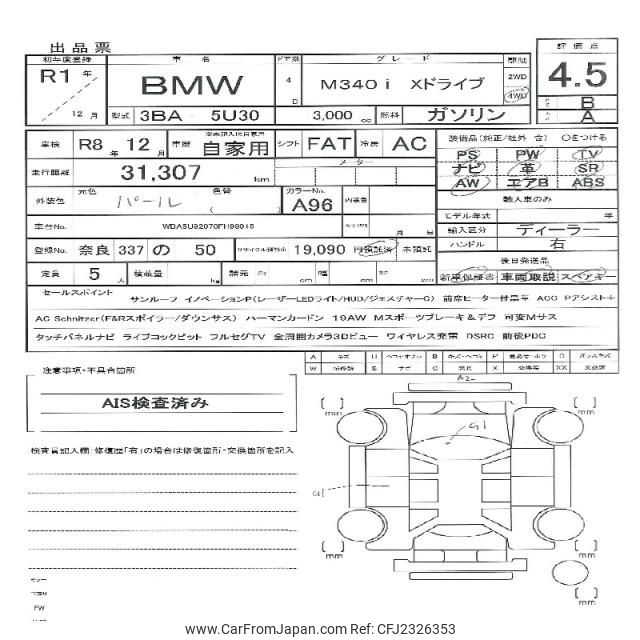 出品票
初年度登録 車名 ドア数 グレード 評価点
R1年 BMW 4 D M340i Xドライブ 2WD 4WD 4.5
12月 型式 3BA - 5U30 3,000 cc 燃料 ガソリン B A
車検 R8年 12月 車歴 自家用 シフト FAT 冷房 AC 装備品(純正/社外 含) ○をつける
走行距離 31,307 km メーター PS PW TV
ナビ 革 SR
AW エアB ABS
外装色 元色 パール 色替 ( ) カラーNo. A96 内装色 輸入車のみ
モデル年式 年
車台No. 月 日 輸入区分 ディーラー
登録No. 奈良 337 の 50 リサイクル預託金 19,090 円預託済 未預託 ハンドル 右
後日発送品
定員 5人 積載量 kg 諸元 cm 幅 cm cm 新車保証書 車両取説 スペアキー
セールスポイント
サンルーフ イノベーションP(レーザーLEDライト/HUD/ジェスチャーC) 前席ヒーター付黒革 ACC Pアシスト+
AC Schnitzer(F&Rスポイラー/ダウンサス) ハーマンカードン 19AW Mスポーツブレーキ&デフ 可変Mサス
タッチパネルナビ ライブコックピット フルセグTV 全周囲カメラ3Dビュー ワイヤレス充電 DSRC 前後PDC
注意事項・不具合箇所
AIS検査済み
検査員記入欄:修復歴「有」の場合は修復箇所・交換箇所を記入
A U B P G
W S C X XX
A2
G1
mm
mm
mm
mm
PW
www.CarFromJapan.com Ref: CFJ2326353